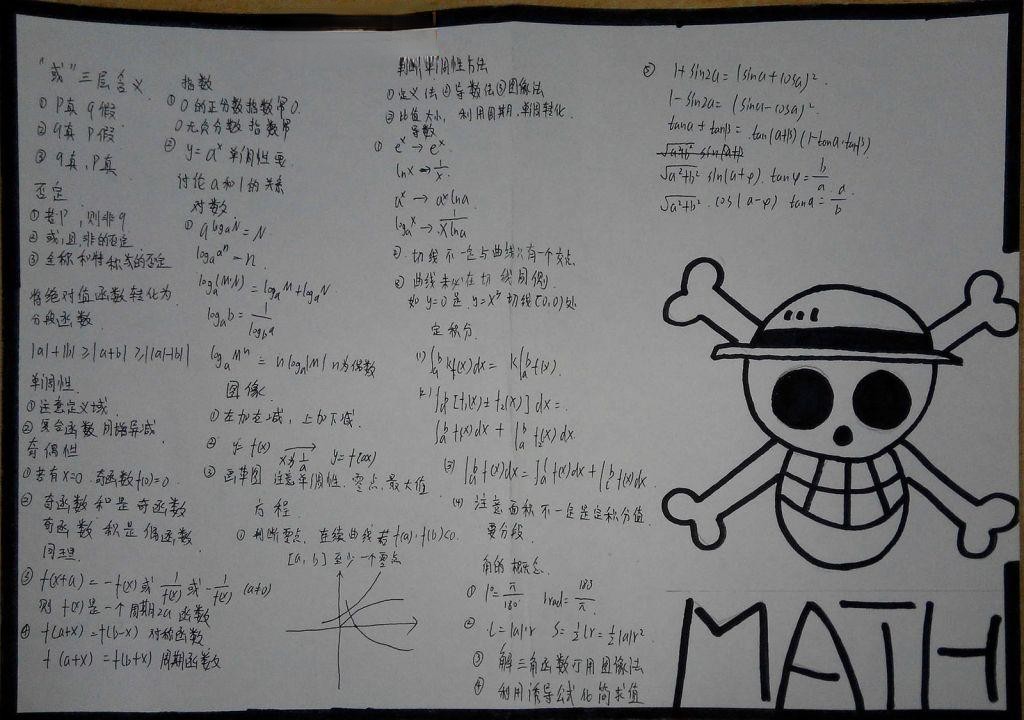 "或"三层含义
① P真 q假
② q真 P假
③ q真,P真
否定
① 若P,则非q
② 或,且,非的否定
③ 全称和特称或的否定
将绝对值函数转化为
分段函数
|a|+|b|≥|a+b|≥||a|-|b||
单调性
①注意定义域
②复合函数 同增异减
奇偶性
①若有x=0.奇函数f(0)=0
② 奇函数和是奇函数
奇函数积是偶函数
同理.
③ f(x+a)=-f(x)或 1/f(x) 或 -1/f(x) (a≠0)
则 f(x)是一个周期2a 函数
④ f(a+x)=f(b-x) 对称函数
f(a+x)=f(b+x) 周期函数
指数
① 0的正分数指数幂0.
0无负分数指数幂
② y=a^x 单调性要
讨论a和1的关系
对数
① a^(log_a N)=N
log_a a^n=n.
log_a(M·N)=log_a M+log_a N
log_a b=1/log_b a
log_a M^n=n log_a|M| n为偶数
图像.
①左加右减,上加下减.
② y=f(x) → y=f(ax)
③ 画草图 注意单调性.零点,最大值
方程.
① 判断零点.连续曲线若f(a)·f(b)<0.
[a,b]至少一个零点
判断单调性方法
①定义法 ②导数法 ③图像法
②比值大小,利用周期,单调转化.
导数
① e^x→e^x
lnx→1/x.
a^x→a^x lna
log_a^x→1/xlna
② 切线不一定与曲线只有一个交点.
② 曲线未必在切线同侧
如 y=0 是 y=x³ 切线(0,0)处
定积分.
(1) ∫_a^b kf(x)dx= k∫_a^b f(x).
∫_a^b [f₁(x)±f₂(x)]dx=.
∫_a^b f(x)dx+∫_a^b f₂(x)dx.
(3) ∫_a^b f(x)dx=∫_a^c f(x)dx+∫_c^b f(x)dx.
(4) 注意面积不一定是定积分值.
要分段.
角的概念.
① 1°=π/180° 1rad=180/π.
② L=|a|·r S=½Lr=½|a|r².
③ 解三角函数可用图像法
④ 利用诱导公式化简求值
⑤ 1+sin2a=(sina+cosa)².
1-sin2a=(sina-cosa)².
tana+tanβ=tan(a+β)(1-tana·tanβ)
√a²+b² sin(a+φ). tanφ=b/a.
√a²+b². cos(a-φ) tana=a/b
MATH